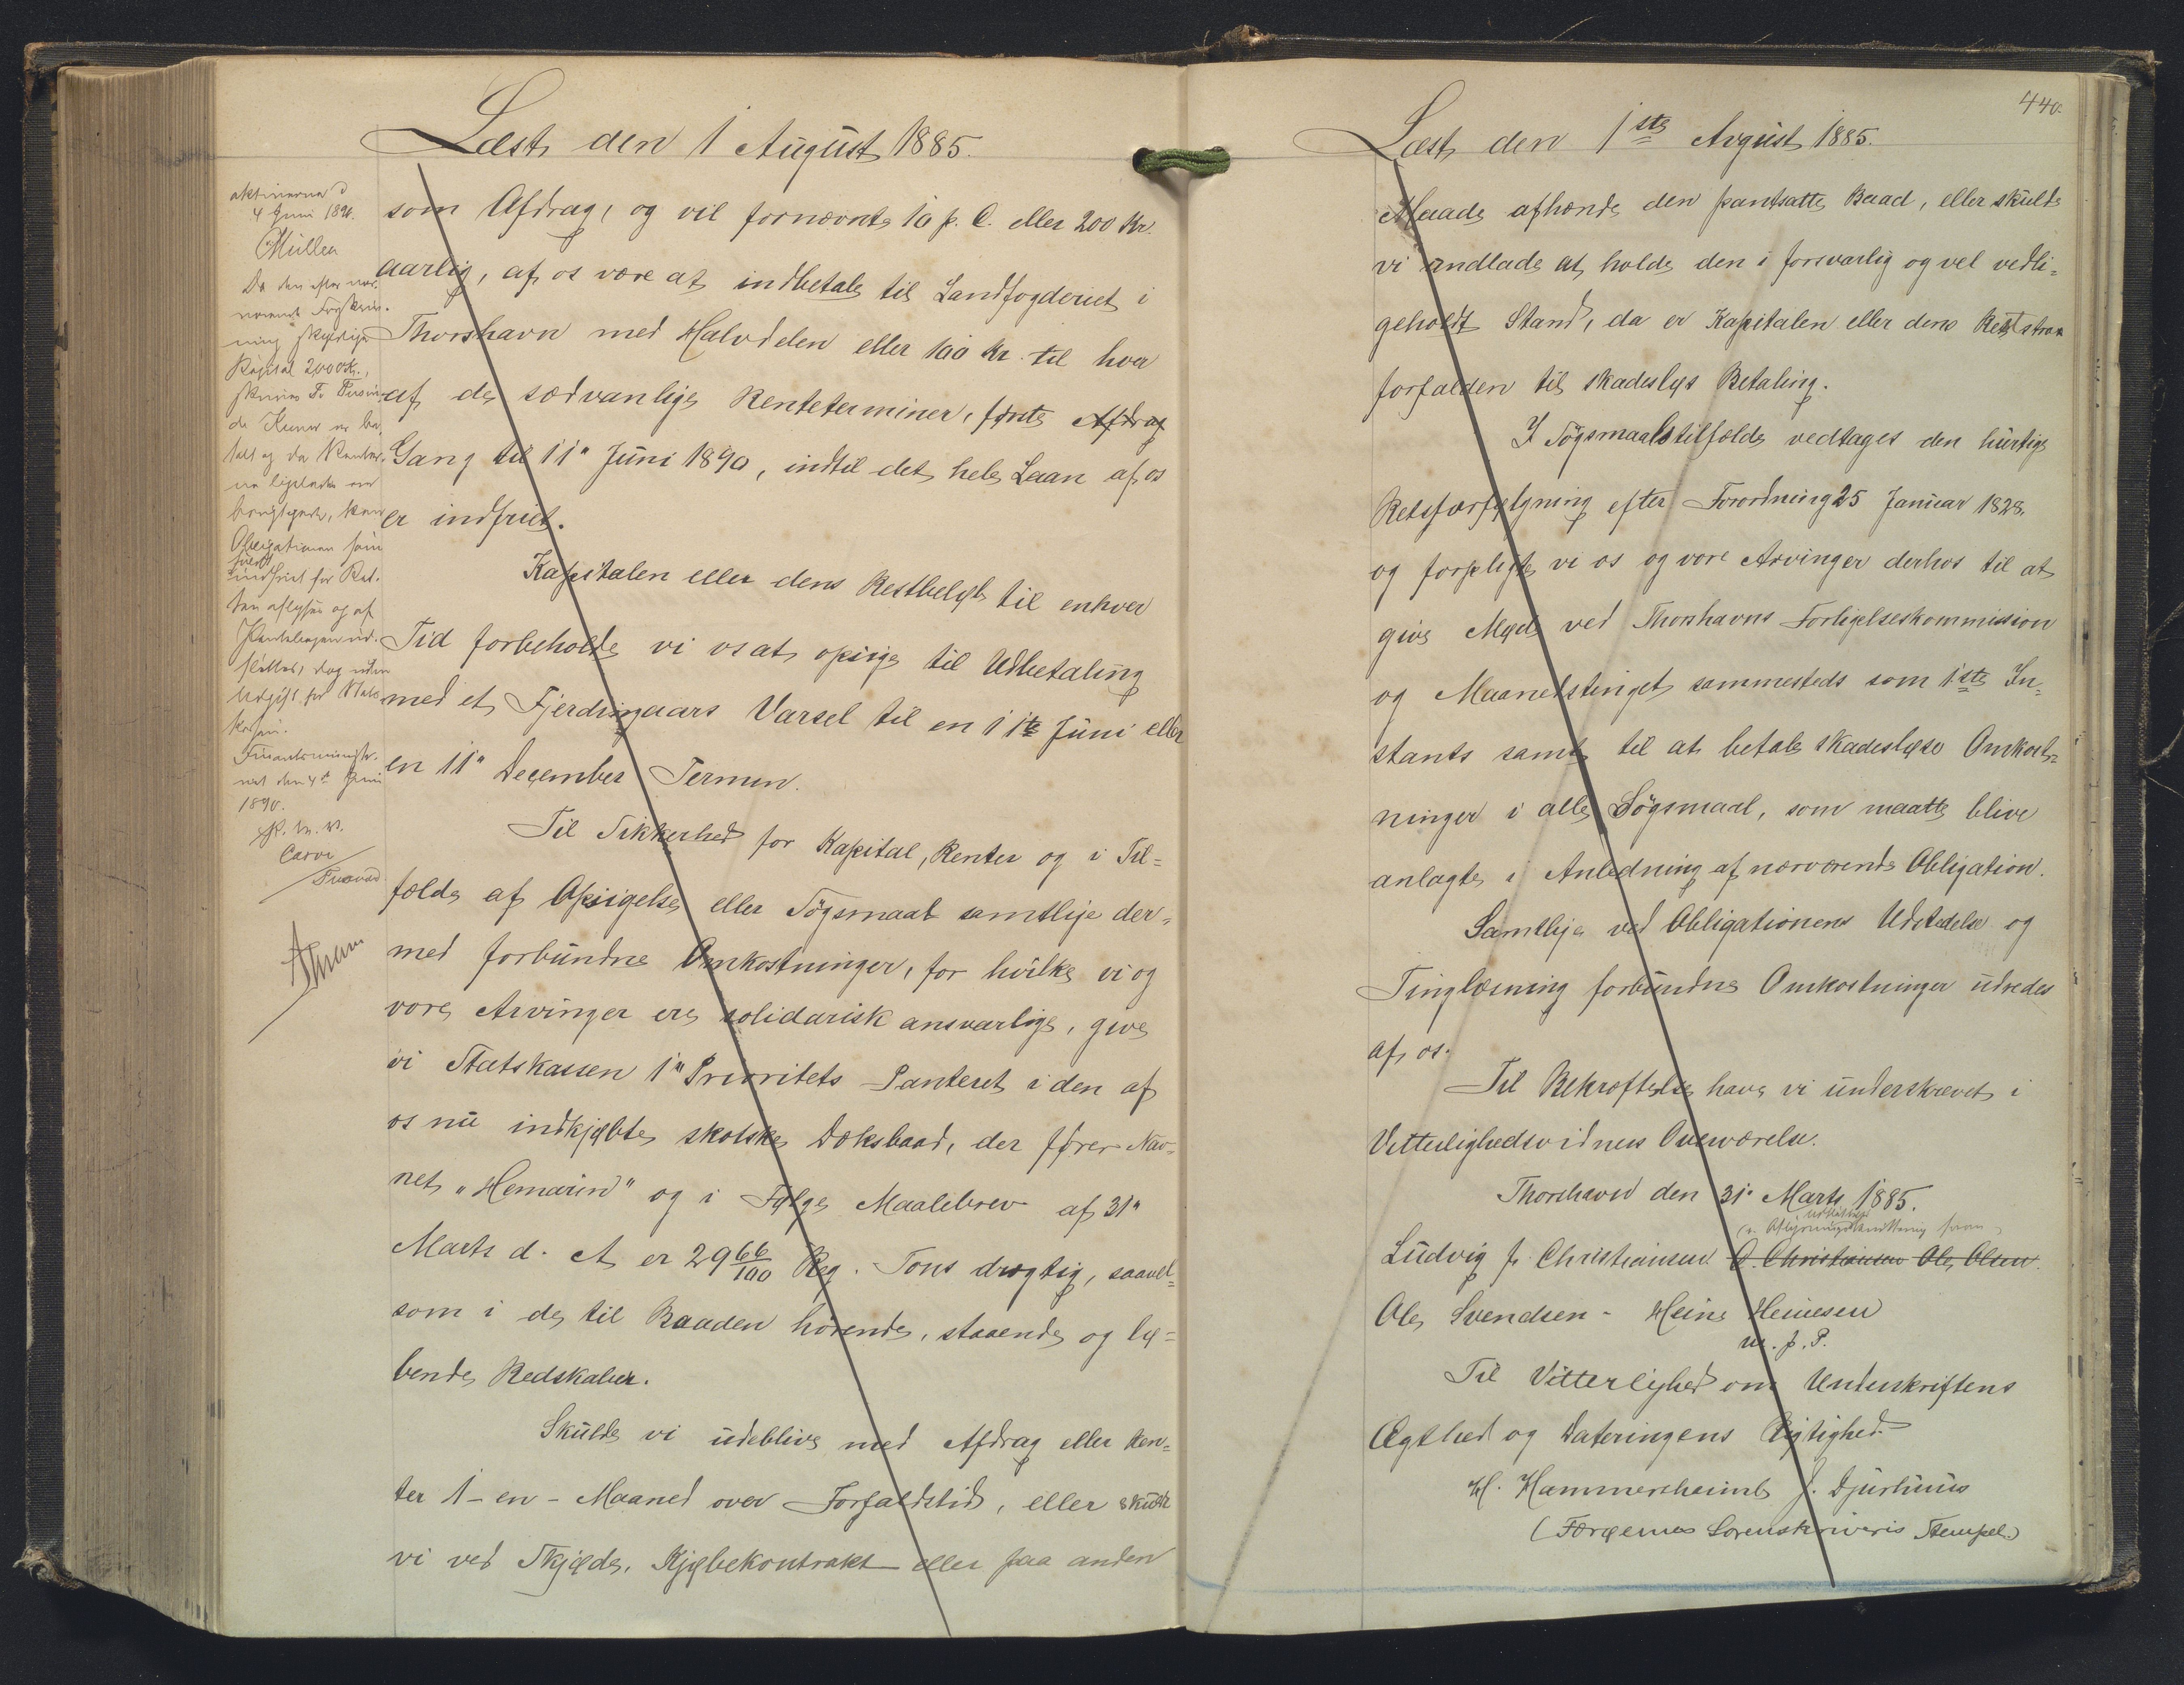 Læst den 1 August 1885.
4 Juni 1890.
Müller
Da den efter nær-
værende Forskriv-
ning skyldige
Kapital 2000 Kr.,
skriver To Tusin-
de Kroner er be-
talt og da Renter-
ne ligeledes ere
berigtigede, kan
Obligationen som
indfriet for Ret-
ten aflyses og af
Pantebogen ud-
slettes, dog uden
Udgift for Stats-
kassen.
Finantsministe-
riet den 4de Juni
1890.
P. M. V.
som Afdrag, og vil fornævnte 10 p. C. eller 200 Kr.
aarlig, af os være at indbetale til Landfogderiet i
Thorshavn med Halvdelen eller 100 Kr. til hver
af de sædvanlige Renteterminer, første Afdrag
Gang til 11" Juni 1890, indtil det hele Laan af os
er indfriet.
Kapitalen eller dens Restbeløb til enhver
Tid forbeholde vi os at opsige til Udbetaling
med et Fjerdingaars Varsel til en 11te Juni eller
en 11" December Termin.
Til Sikkerhed for Kapital, Renter og i Til-
fælde af Opsigelse eller Søgsmaal samtlige der-
med forbundne Omkostninger, for hvilke vi og
vore Arvinger ere solidarisk ansvarlige, give
vi Statskassen 1" Prioritets Panteret i den af
os nu indkjøbte skotske Dæksbaad, der fører Nav-
net, "Hemarin" og i Følge Maalebrev af 31"
Marts d. A er 29 66/100 Reg. Tons drægtig, saavel-
som i de til Baaden hørende, staaende og lø-
bende Redskaber.
Skulde vi udeblive med Afdrag eller Ren-
ter 1 - en - Maaned over Forfaldstid, eller skulde
vi ved Skjøde, Kjøbekontrakt eller paa anden
440.
Læst den 1ste August 1885.
Maade afhænde den pantsatte Baad, eller skulde
vi undlade at holde den i forsvarlig og vel vedli-
geholdt Stand, da er Kapitalen eller dens Rest strax
forfalden til skadesløs Betaling.
I Søgsmaalstilfælde vedtages den hurtige
Retsforfølgning efter Forordning 25 Januar 1828,
og forpligte vi os og vore Arvinger derhos til at
give Møde ved Thorshavns Forligelseskommission
og Maanedstinget sammesteds som 1ste In-
stants samt til at betale skadesløse Omkost-
ninger i alle Søgsmaal, som maatte blive
anlagte i Anledning af nærværende Obligation.
Samtlige ved Obligationens Udstedelse og
Tinglæsning forbundne Omkostninger udredes
af os.
Til Bekræftelse have vi underskrevet i
Vitterlighedsvidners Overværelse.
Thorshavn den 31" Marts 1885.
Ludvig J. Christiansen O. Christiansen Ole Olsen.
Ole Svendsen - Heine Heinesen
m. f. P.
Til Vitterlighed om Underskriftens
Ægthed og Dateringens Rigtighed.
H. Hammershaimb J. Djurhuus
(Færøernes Sorenskriveris Stempel.)